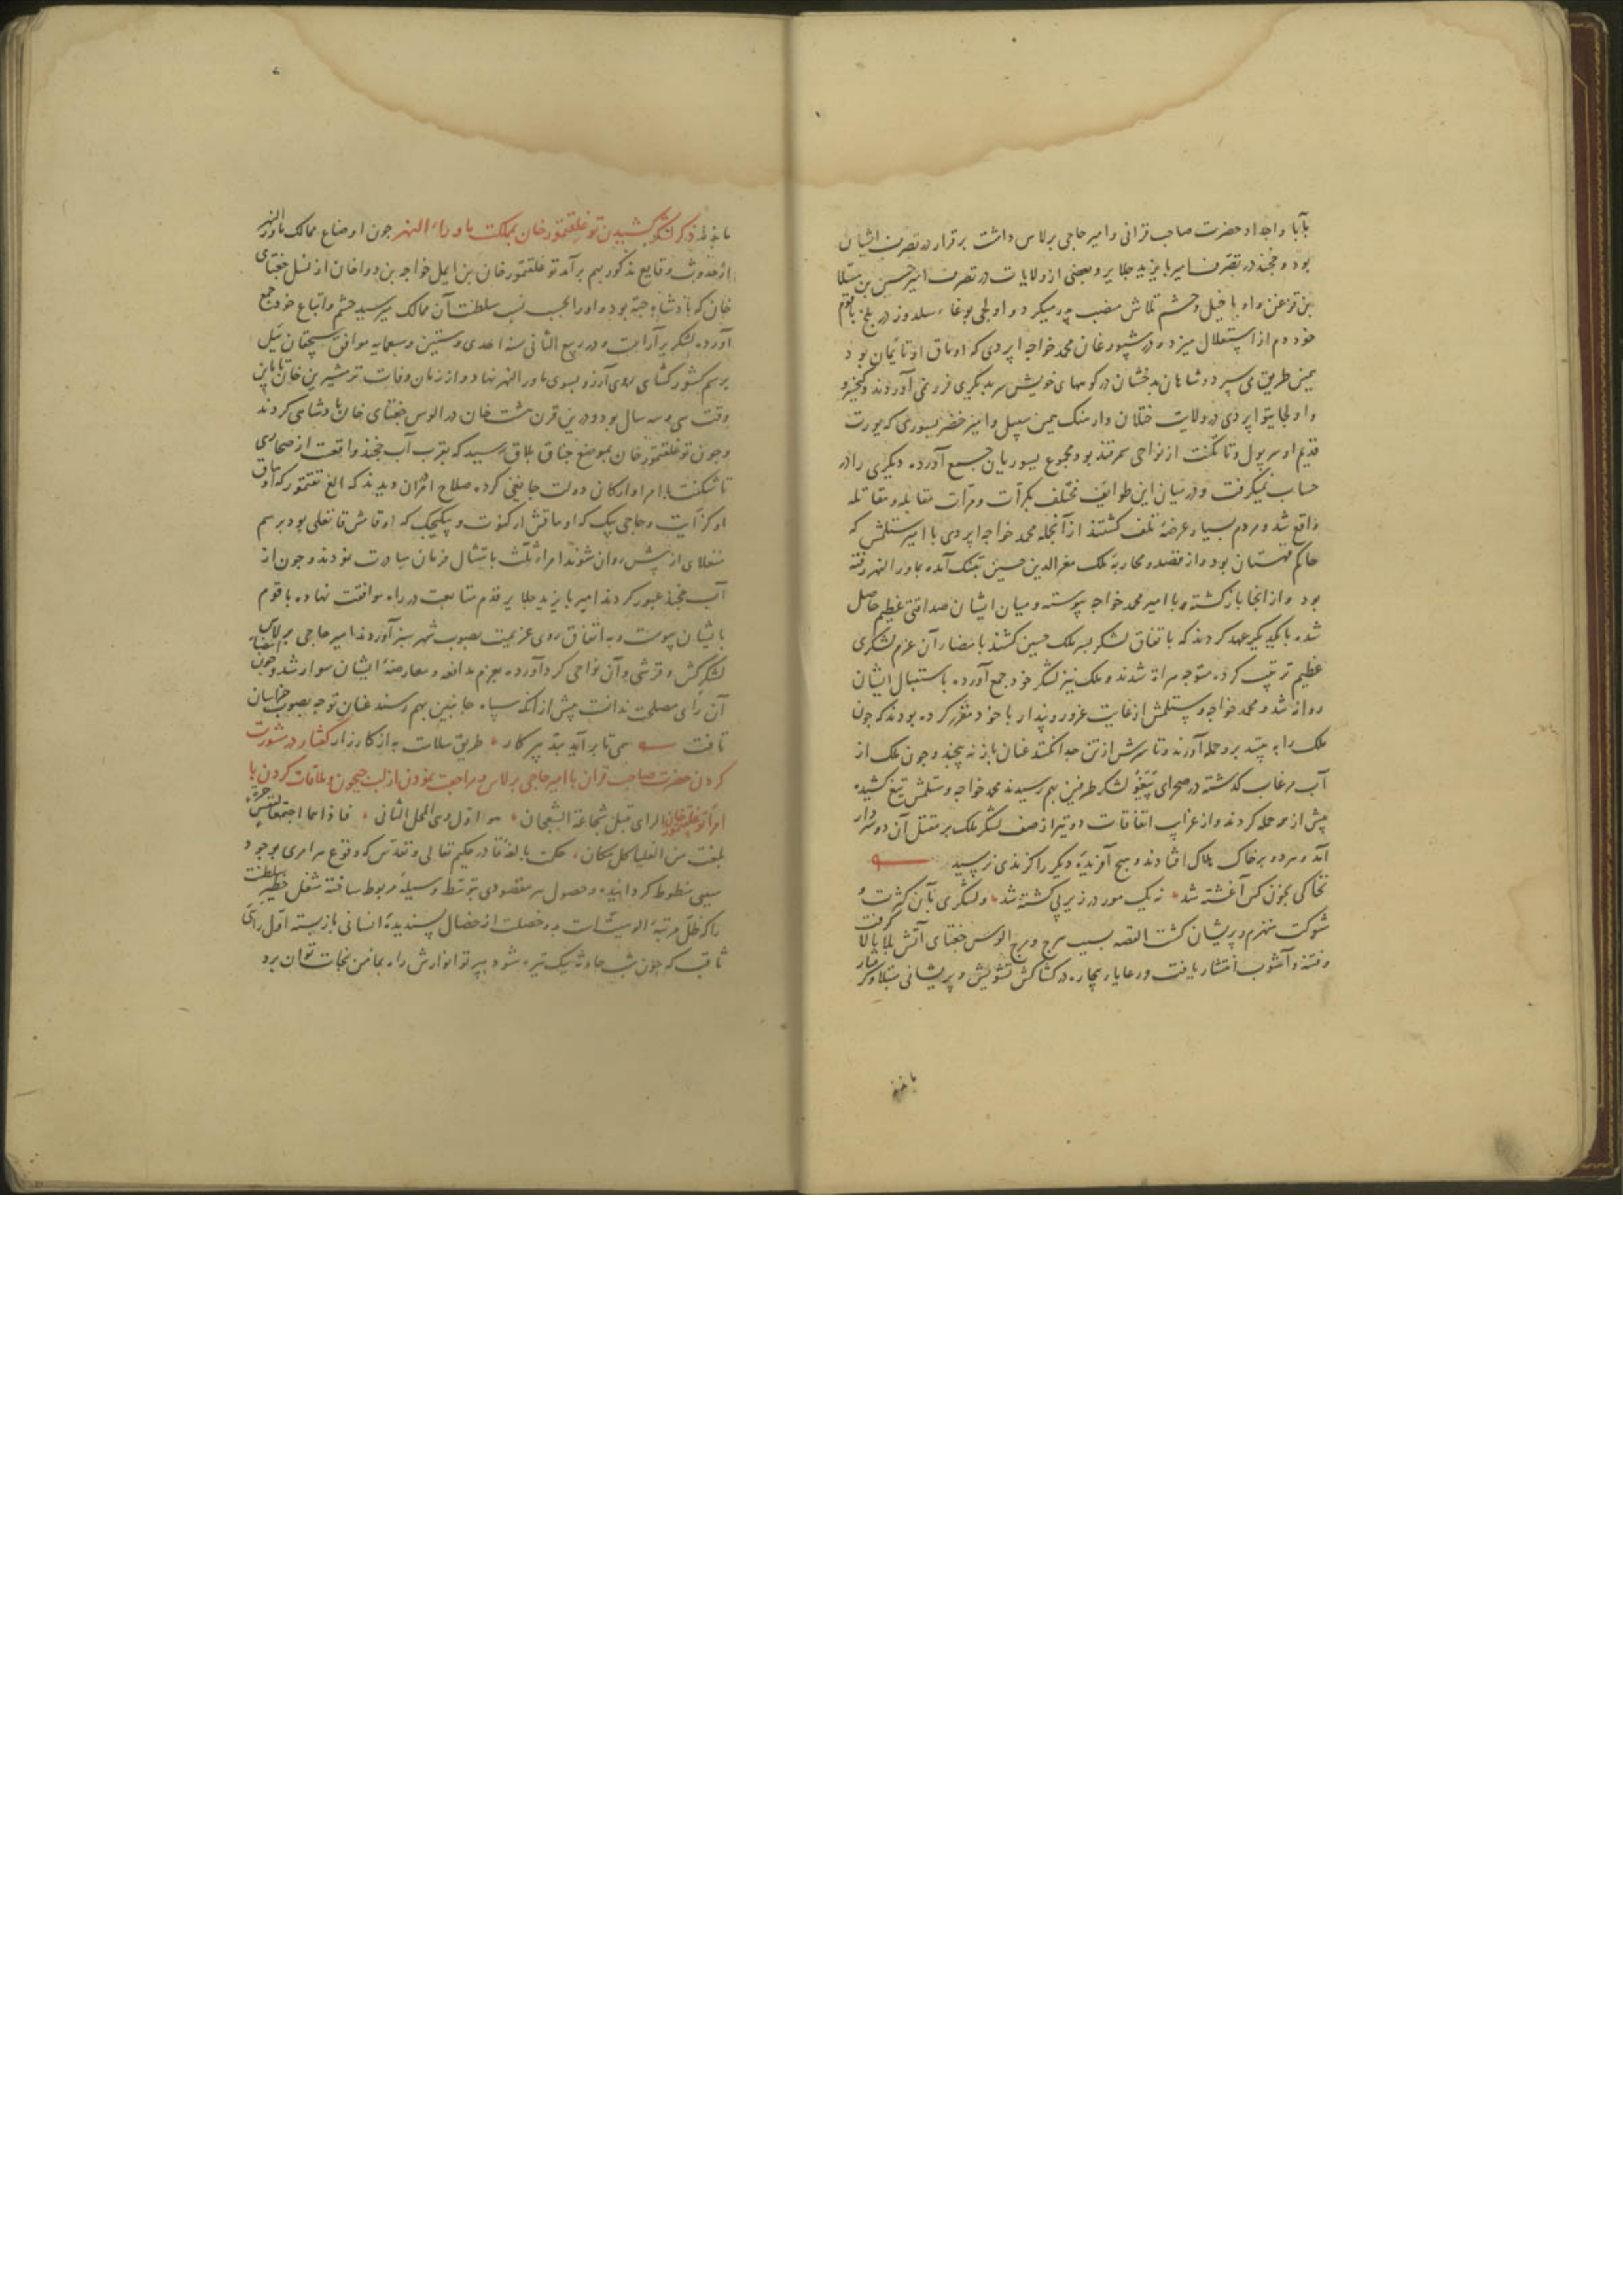 بآبا واجداد حضرت صاحب قرانی وامیر حاجی برلاس داشت برقرار در تصرف ایشان
بود و خجند در تصرف امیر بایزید جلایر و بعضی از ولایات در تصرف امیر حسین بن مسلا
بن قزغن واو با خیل وحشم تلاش منصب پدر میکرد و اولجی بوغاء سلدوز در بلخ با قوم
خود دم از استقلال میزد و در شپورغان محمد خواجه اپردی که اوماق او نایمان بود
همین طریق می سپرد و شاهان بدخشان در کوههای خویش سر بدیگری فرو نمی آوردند و کیخسرو
و اولجایتو اپردی در ولایت ختلان وارهنک همین سپیل وامیر خضر یسوری که یورت
قدیم او سرپول و تاتکنت از نواحی سمرقند بود مجموع یسوریان جمع آورده دیگری را در
حساب نمیکرفت و در میان این طوایف مختلف بکرات ومرات مقابله و مقاتله
واقع شد و مردم بسیار عرضه تلف کشتند از آنجمله محمد خواجه اپردی با امیر ستلمش که
حاکم قهستان بود واز قصد و محاربهٔ ملک معزالدین حسین بتنک آمده بماورالنهر رفته
بود واز انجا بازکشته و با امیر محمد خواجه پیوسته و میان ایشان صداقتی عظیم حاصل
شده بایکدیکر عهد کردند که باتفاق لشکر بسر ملک حسین کشند بامضاء آن عزم لشکری
عظیم ترتیب کرده متوجه هراة شدند و ملک نیز لشکر خود جمع آورده باستقبال ایشان
روانه شد و محمد خواجه و ستلمش از غایت غرور و پندار با خود مقرر کرده بودند که چون
ملک را به بینند برو حمله آورند و تا سرش از تن جدا نکنند عنان باز نه پیچند و چون ملک از
آب مرغاب کذشته در صحرای لشکر طرفین بهم رسیدند محمد خواجه و ستلمش تیغ کشیده
پیش از همه حمله کردند واز غرایب اتفاقات دو تیر از صف لشکر ملک بر مقتل آن دو سردار
آمد و هر دو بر خاک هلاک افتادند و هیچ آفریدهٔ دیگر را کزندی نرسید
نخاکی بخون کس آغشته شد نه یک مور در زیر پی کشته شد و لشکری بآن کثرت و
شوکت منهزم و پریشان کشت القصه بسبب هرج و مرج الوس جغتای آتش بلا بالا کرفت
و فتنه و آشوب انتشار یافت و رعایاء بیچاره در کشاکش تشویش و پریشانی مبتلا و کرفتار
ماندند
ماندند ذکر لشکر کشیدن توغلقتمور خان بمملکت ماوراءالنهر چون اوضاع ممالک ماورالنهر
از حدوث وقایع مذکور بهم برآمد توغلقتمور خان بن ایمل خواجه بن دواخان از نسل جغتای
خان که پادشاه جته بود و اورا بحسب نسب سلطنت آن ممالک میرسید حشم و اتباع خود جمع
آورده لشکر برآراست و در ربیع الثانی سنه احدی وستین وسبعمایه موافق سیچقان ئیل
برسم کشورکشای روی آرزو بسوی ماورالنهر نهاد و از زمان وفات ترمشیرین خان تا باین
وقت سی و سه سال بود و درین قرن هشت خان در الوس جغتای خان پادشاهی کردند
وچون توغلقتمور خان بموضع جناق بلاق رسید که بقرب آب خجند واقعست از صحاری
تاشکنت با امرا وارکان دولت جانقی کرده صلاح آن دیدند که الغ تقتمور که اوماق
او کرایت و حاجی بیک که اوماقش ارکنوت و بیکیجک که اوماقش قانغلی بود برسم
منقلای از پیش روان شوند امراء ثلث بامتثال فرمان مبادرت نمودند و چون از
آب خجند عبور کردند امیر بایزید جلایر قدم متابعت در راه موافقت نهاده با قوم
بایشان پیوست و به اتفاق روی عزیمت بصوب شهر سبز آوردند امیر حاجی برلاس
لشکر کش و قرشی و آن نواحی کرد آورده بعزم مدافعه و معارضهٔ ایشان سوار شد و چون
آن رای مصلحت ندانست پیش از انکه سپاه جانبین بهم رسند عنان توجه بصوب خراسان
تافت همی تا برآید بتدبیر کار طریق سلامت به از کارزار گفتار در مشورت
کردن حضرت صاحب قران با امیر حاجی برلاس و مراجعت نمودن از لب جیحون و ملاقات کردن با
امراء توغلقتمور خان الرای قبل شجاعة الشجعان هو اول وهی المحل الثانی فاذا هما اجتمعا لنفس حرة
بلغت من العلیا کل مکان حکمت بالغهٔ قادر حکیم تعالی و تقدس که وقوع هر امری بوجود
سببی منوط کردانیده و حصول هر مقصودی بتوسط وسیلهٔ مربوط ساخته شغل خطیر سلطنت
را که ظل مرتبهٔ الوهیت است بدو خصلت از خصال پسندیدهٔ انسانی باز بسته اول رای
ثاقب که چون شب حادثهٔ تیره شود بپرتو انوارش راه بمأمن نجات توان برد